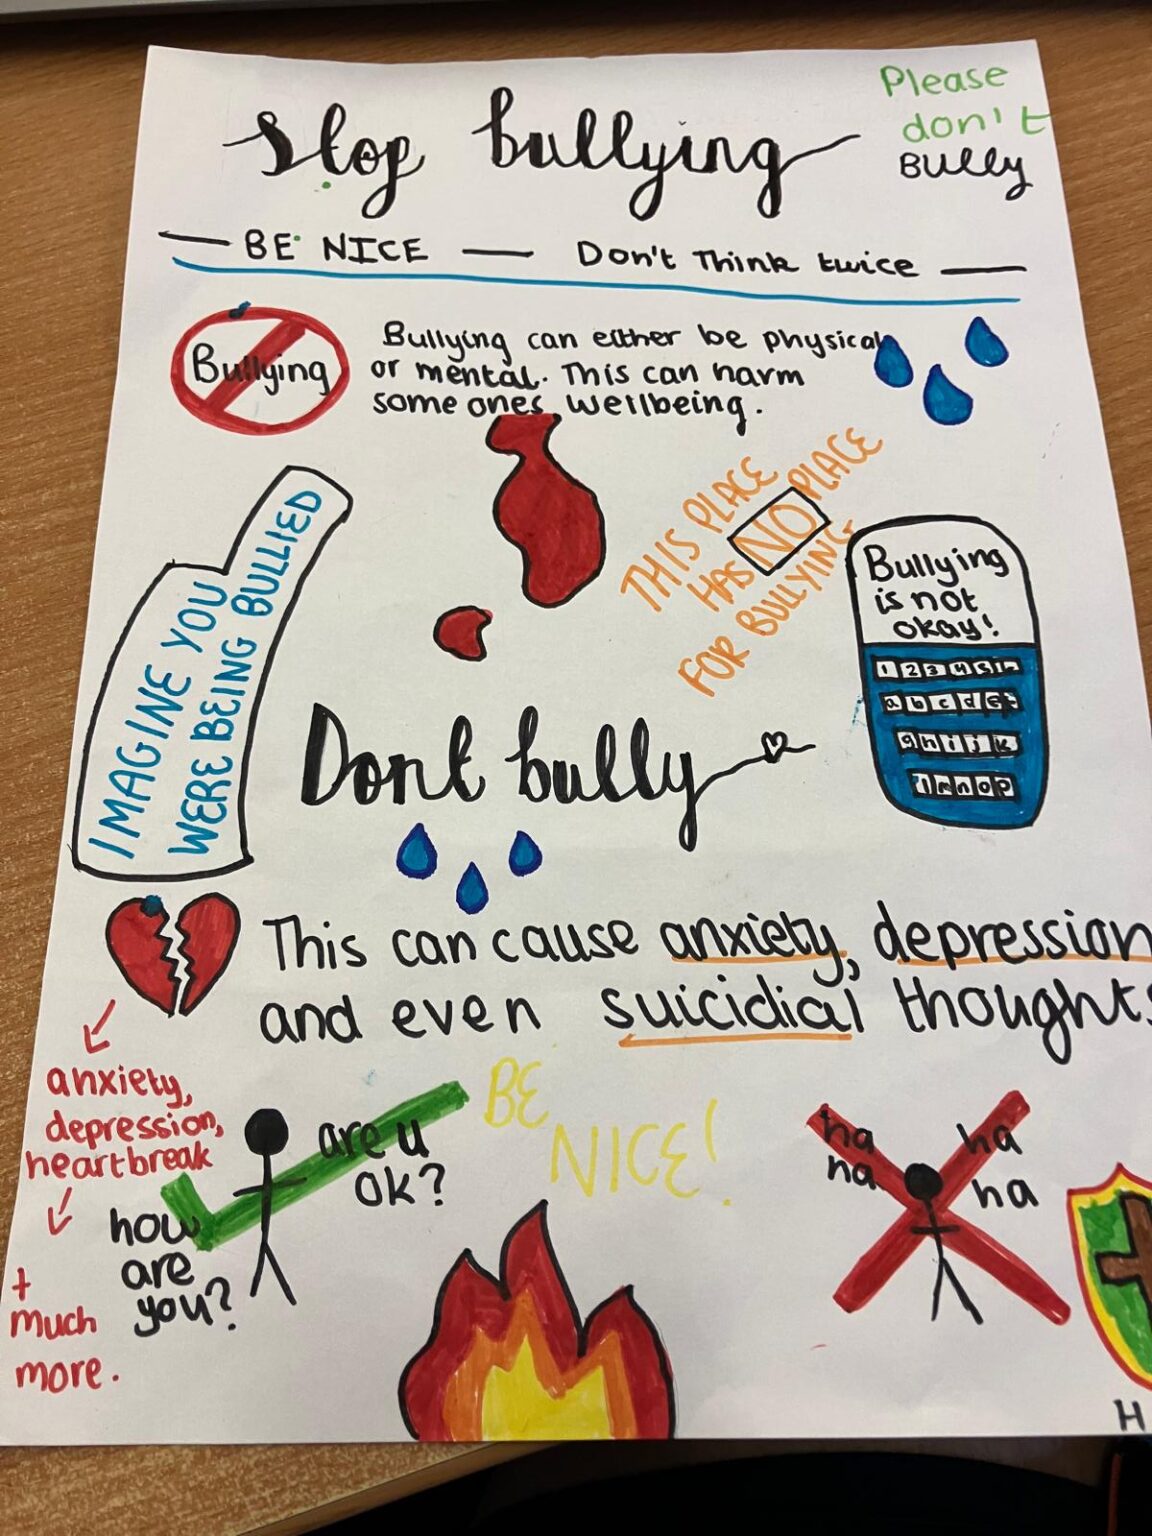 Stop bullying
Please
don't
BULLY
BE NICE
Don't Think twice
Bullying
Bullying can either be physical
or mental. This can harm
someones wellbeing.
THIS PLACE
HAS NO PLACE
FOR BULLYING
IMAGINE YOU
WERE BEING BULLIED
Bullying
is not
okay!
1 2 3 4 5
a b c d e
g h i j k
l m n o p
Dont bully
This can cause anxiety, depression
and even suicidial thoughts
anxiety,
depression,
heartbreak
+
much
more.
are u
ok?
how
are
you?
BE
NICE!
ha
ha
ha
ha
H